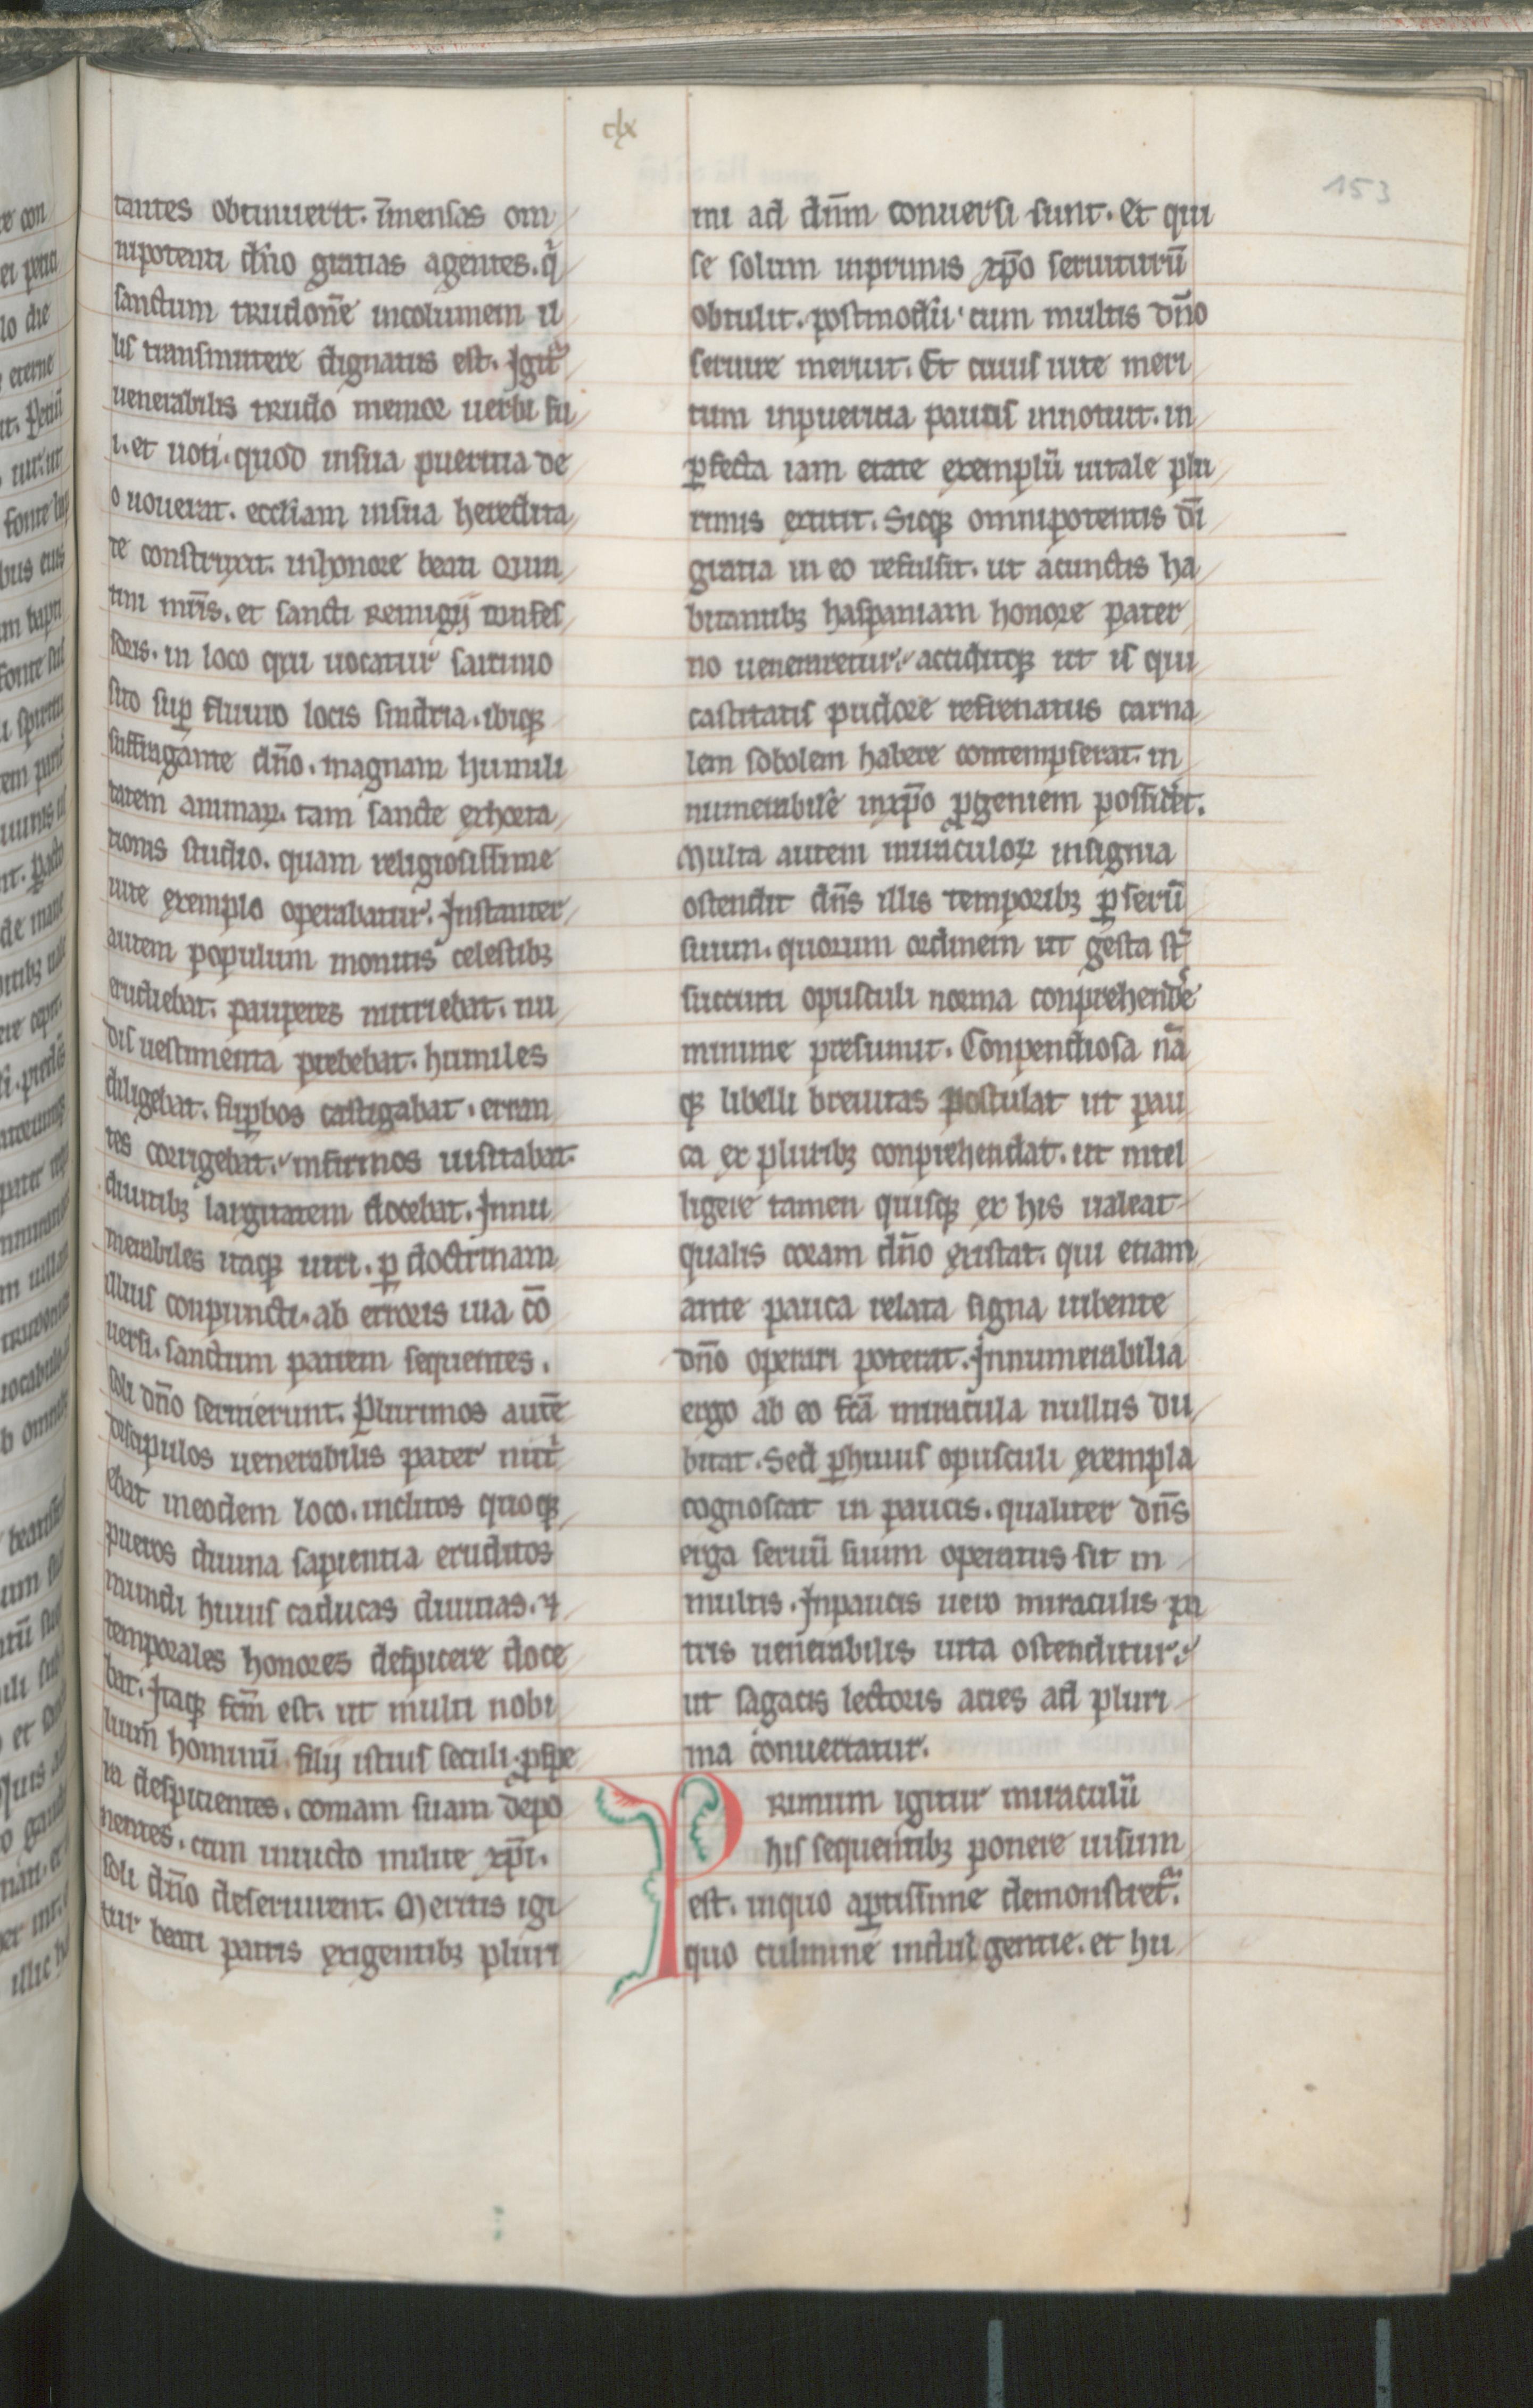 clx
153
tantes obtinuerit. īmensas om
nipotenti dn̄o gratias agentes. q̇
sanctum trudonē incolumem il
lis transmittere dignatus est. Igit᷑
uenerabilis trudo memor uerbi su
i. et uoti. quod insua pueritia de
o uouerat. eccl̄iam insua heredita
te construxit. inhonore beati Quin
tini mr̄is. et sancti Remigij confes
soris. in loco qui uocatur sarcinio
sito suꝑ fluuio locis sindria. ibiqꝫ
suffragante dn̄o. magnam humili
tatem animaꝝ. tam sancte exhorta
tionis studio. quam religiosissime
uite exemplo operabatur. Instanter
autem populum monitis celestibꝫ
erudiebat. pauperes nutriebat. nu
dis uestimenta prebebat. humiles
diligebat. suꝑbos castigabat. erran
tes corrigebat. infirmos uisitabat.
diuitibꝫ largitatem docebat. Innu
merabiles itaqꝫ uiri. ꝑ doctrinam
illius conpuncti. ab erroris uia cō
uersi. sanctum patrem sequentes.
soli dn̄o seruierunt. Plurimos autē
discipulos uenerabilis pater nut̍
ebat ineodem loco. inclitos quoqꝫ
pueros diuina sapientia eruditos
mundi huius caducas diuitias. ⁊
temporales honores despicere doce
bat. Itaqꝫ fcm̄ est. ut multi nobi
lium̄ hominū filij istius seculi ꝓspe
ra despicientes. comam suam depo
nentes. cum inuicto milite xp̄i.
soli dn̄o deseruirent. Meritis igi
tur beati patris exigentibꝫ pluri
mi ad dn̄m conuersi sunt. Et qui
se solum inprimis xp̄o seruiturū
obtulit. postmodū cum multis dn̄o
seruire meruit. Et cuius uite meri
tum inpuericia paucis innotuit. in
ꝑfecta iam etate exemplū uitale plu
rimis extitit. Sicqꝫ omnipotentis dī
gratia in eo refulsit. ut acunctis ha
bitantibꝫ haspaniam honore pater
no ueneraretur. acciditqꝫ ut is qui
castitatis pudore refrenatus carna
lem sobolem habere contempserat. in
numerabilē inxp̄o ꝓgeniem possidet.
Multa autem miraculoꝝ insignia
ostendit dn̄s illis temporibꝫ ꝑ seruū
suum. quorum ordinem ut gesta st̄
succinti opusculi norma conprehendē
minime presumit. Conpendiosa nā
qꝫ libelli breuitas postulat ut pau
ca ex pluribꝫ conprehendat. ut intel
ligere tamen quisqꝫ ex his ualeat
qualis coram dn̄o existat. qui etiam
ante pauca relata signa iubente
dn̄o operari poterat. Innumerabilia
ergo ab eo fcā miracula nullus du
bitat. Sed ꝑhuius opusculi exempla
cognoscat in paucis. qualiter dn̄s
erga seruū suum operatus sit in
multis. Inpaucis uero miraculis pa
tris uenerabilis uita ostenditur.
ut sagacis lectoris acies ad pluri
ma conuertatur.
Primum igitur miraculū
his sequentibꝫ ponere uisum
est. inquo aꝑtissime demonstret᷑.
quo culmine indulgentie. et hu